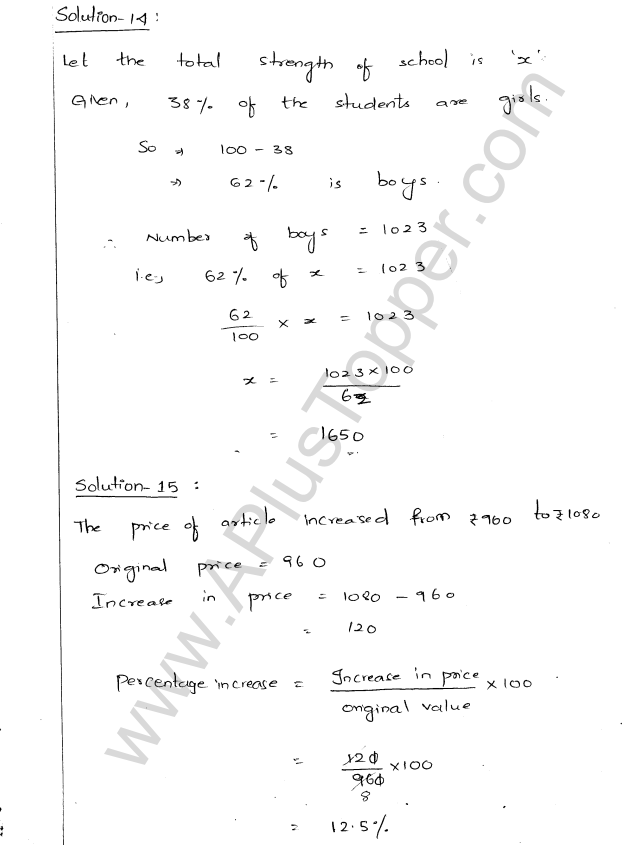 Solution-14:
Let the total strength of school is 'x'.
Given, 38% of the students are girls.
So ⇒ 100 - 38
⇒ 62% is boys.
∴ Number of boys = 1023
i.e., 62% of x = 1023
62/100 × x = 1023
x = 1023×100/62
= 1650
Solution-15:
The price of article increased from ₹960 to ₹1080
Original price = 960
Increase in price = 1080 - 960
= 120
Percentage increase = Increase in price/original value ×100
= 120/960 ×100
8
= 12.5%
www.APlusTopper.com